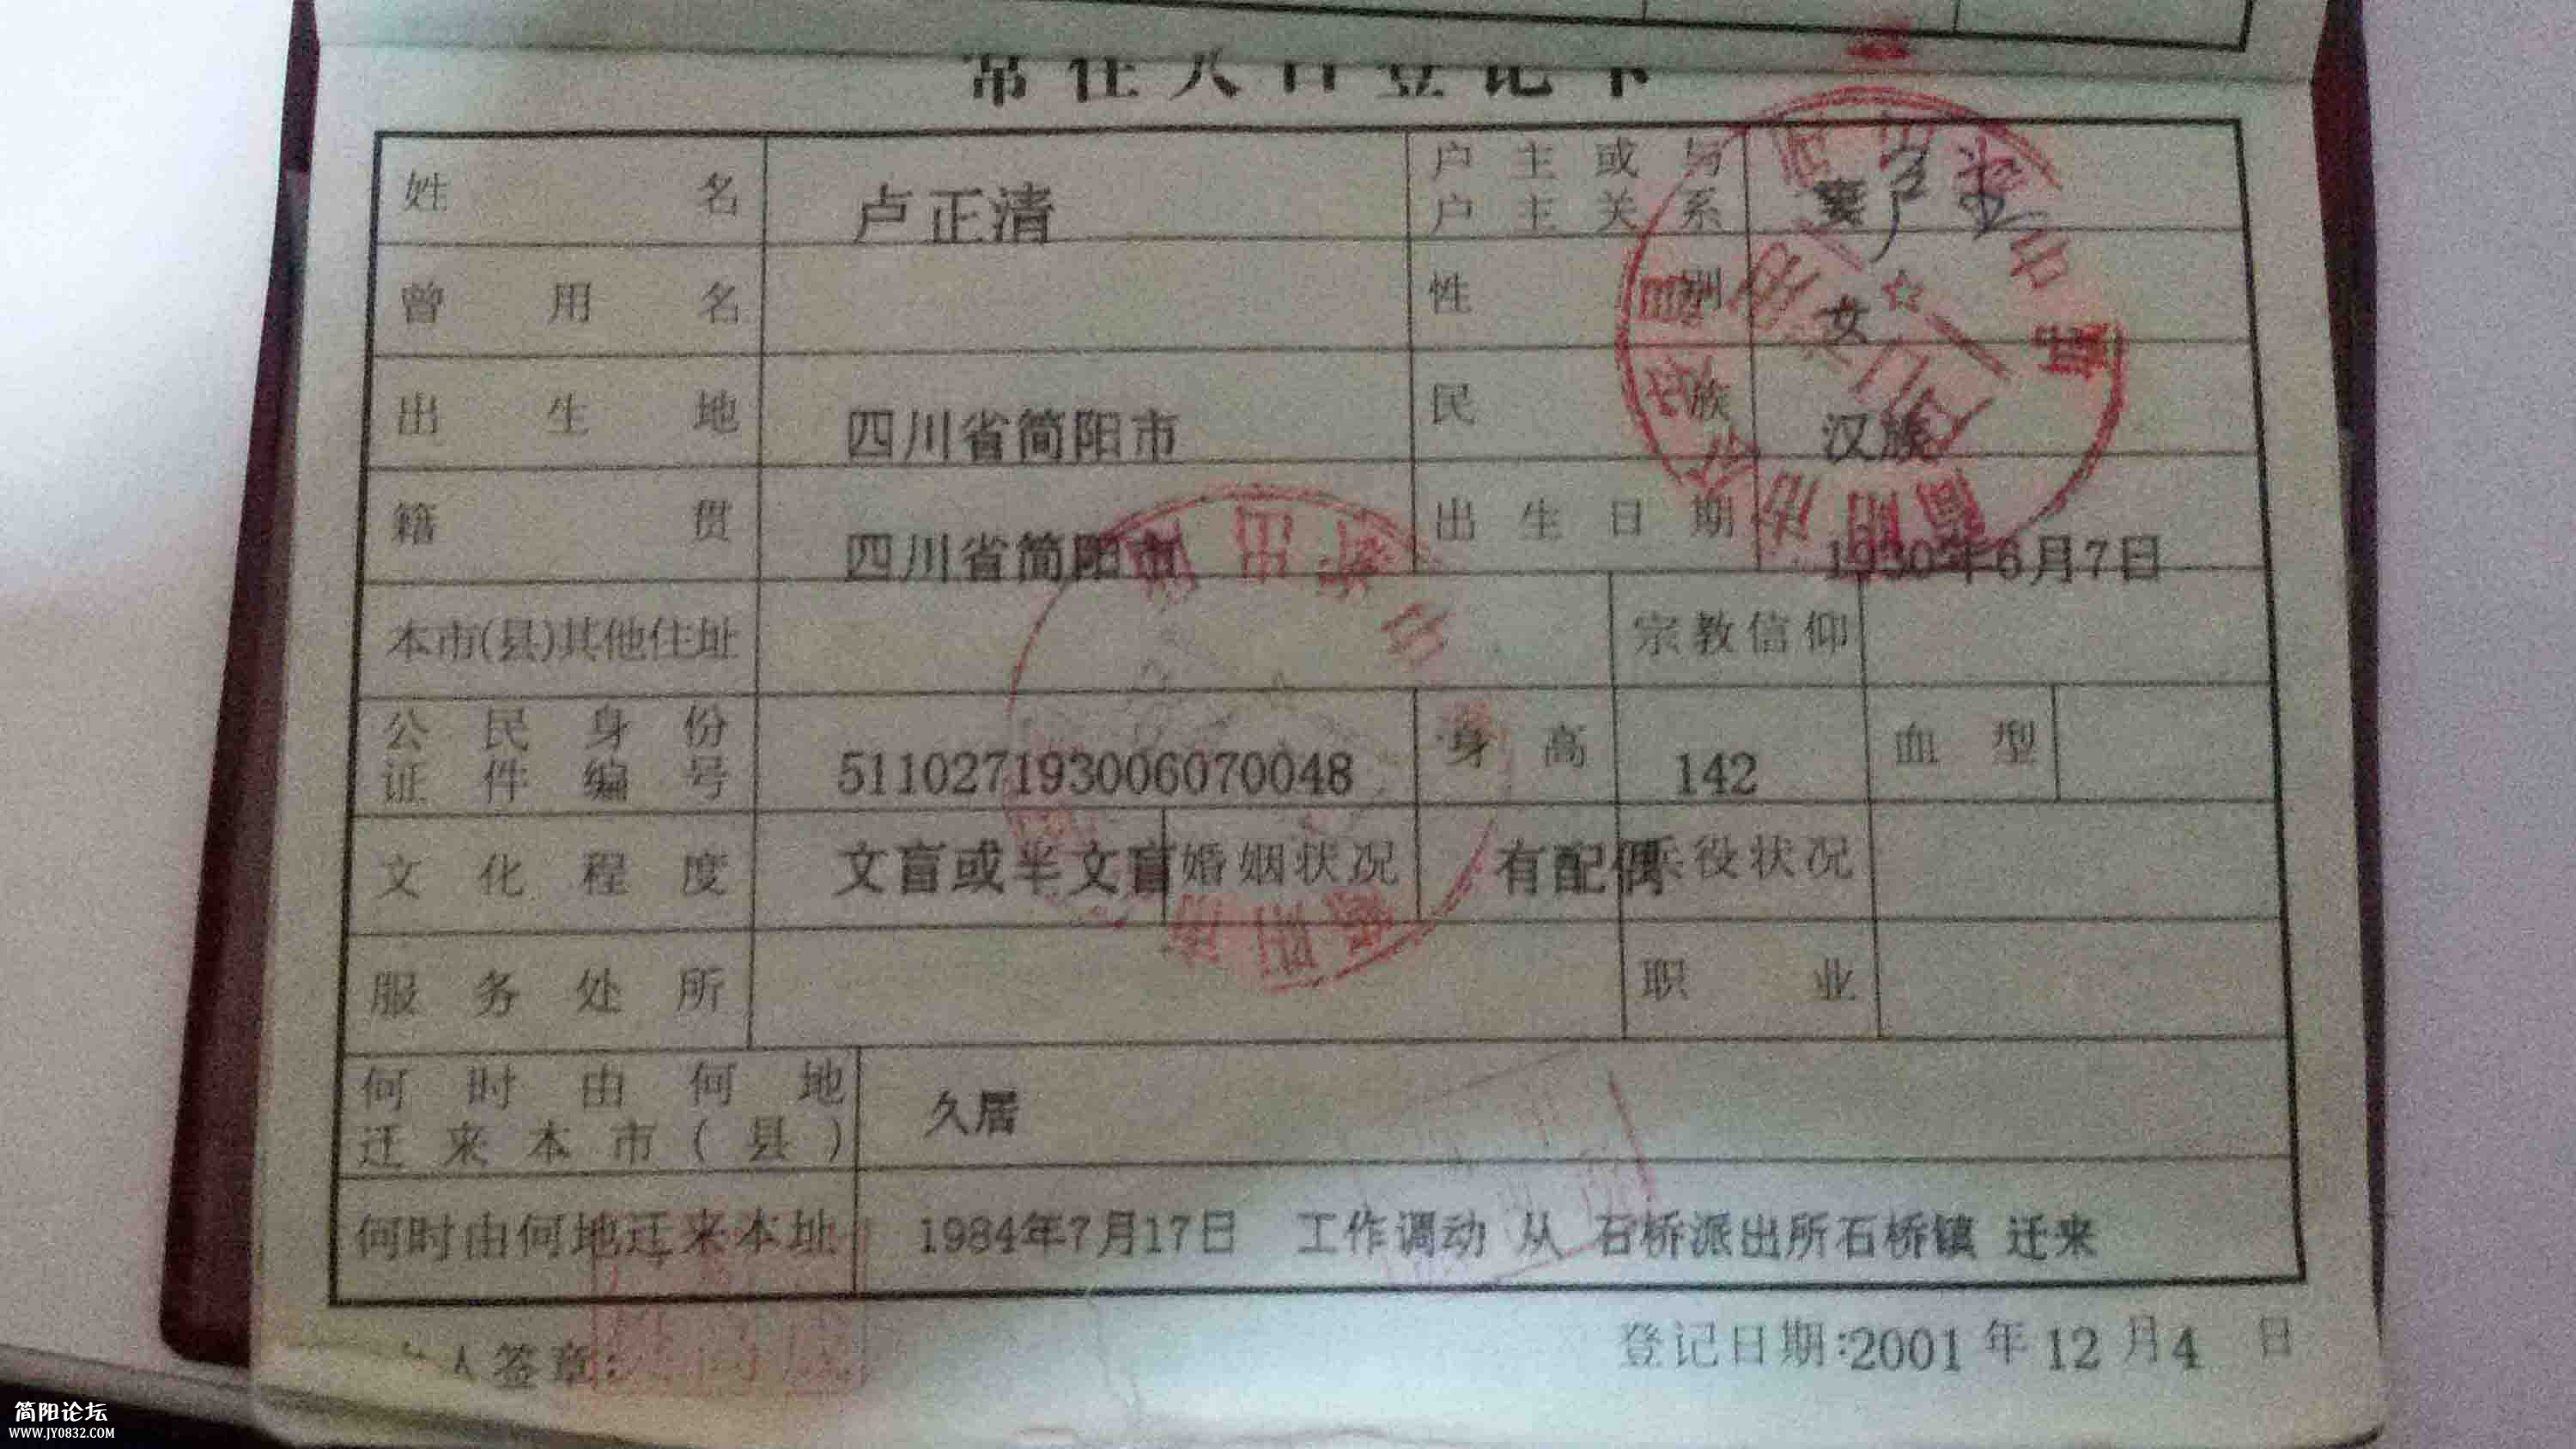 常住人口登记卡
姓名 卢正清 户主或与户主关系 妻 户主
曾用名 性别 女
出生地 四川省简阳市 民族 汉族
籍贯 四川省简阳市 出生日期 1930年6月7日
本市(县)其他住址 宗教信仰
公民身份证件编号 511027193006070048 身高 142 血型
文化程度 文盲或半文盲 婚姻状况 有配偶 兵役状况
服务处所 职业
何时由何地迁来本市(县) 久居
何时由何地迁来本址 1984年7月17日 工作调动 从 石桥派出所石桥镇 迁来
人签章:
登记日期:2001年12月4日
简阳论坛
WWW.JY0832.COM